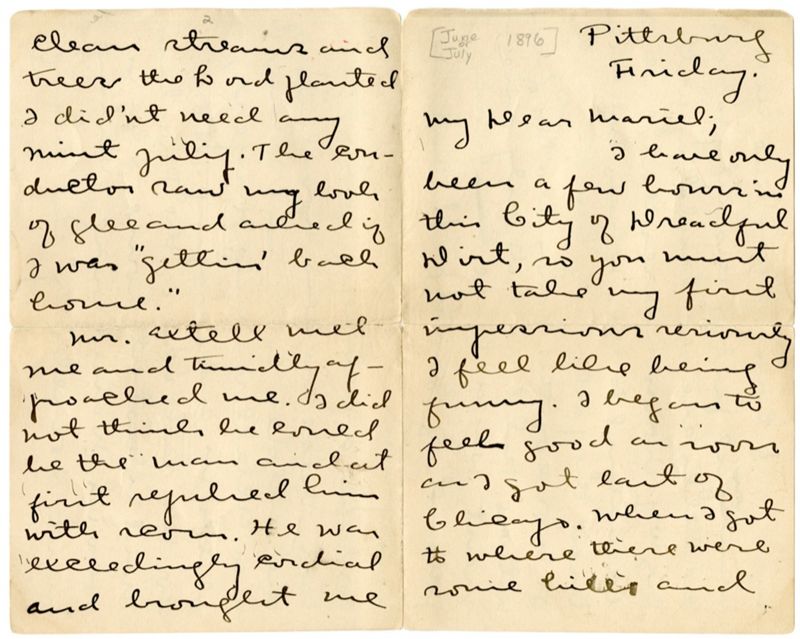 [June or July 1896]
Pittsburg
Friday.
My Dear Mariel;
I have only
been a few hours in
this City of Dreadful
Dirt, so you must
not take my first
impessions seriously
I feel like being
funny. I began to
feel good as soon
as I got east of
Chicago. When I got
to where there were
some hills and
2
clean streams and
trees the Lord planted
I did'nt need any
mint julip. The con-
ductor saw my look
of glee and asked if
I was "gettin' back
home."
Mr. Axtell met
me and timidly ap-
proached me. I did
not think he coued
be the man and at
first repulsed him
with scorn. He was
exceedingly cordial
and brought me